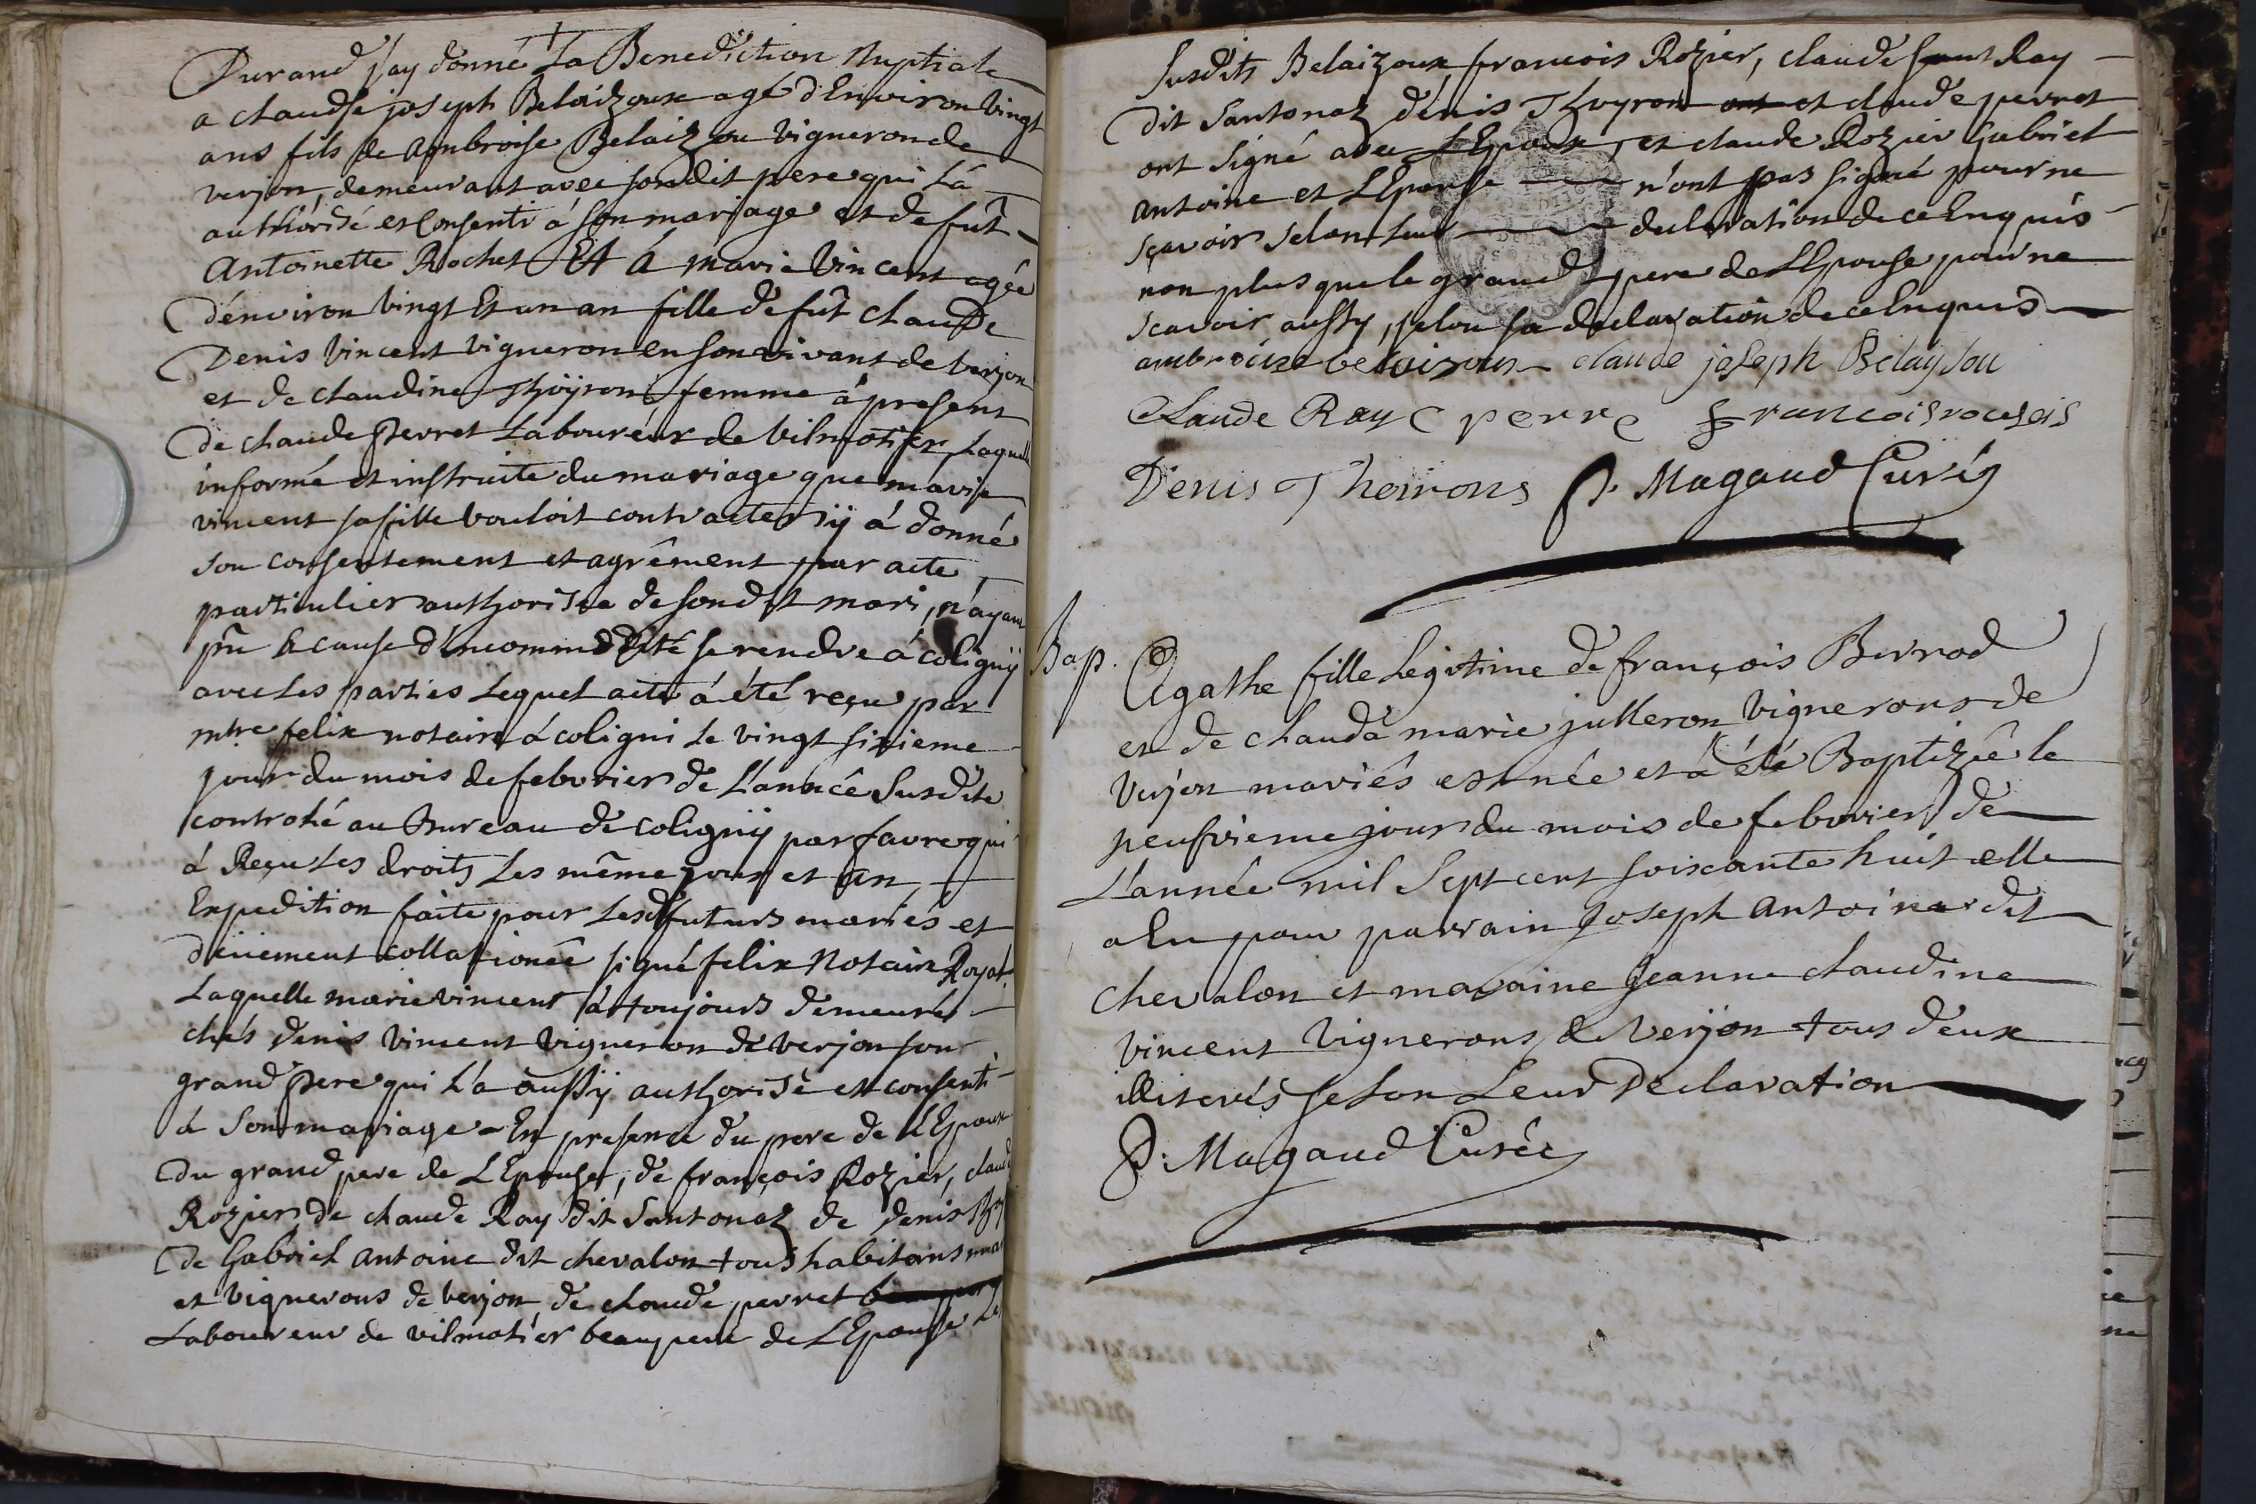 Durand j'ay donné La Benediction Nuptiale
a claude joseph Belaizoux agé d'Environ Vingt
ans fils de ambroise Belaizou Vigneron de
verjon, demeurant avec sondit pere qui L'a
authorisé et Consenti á son mariage et de fût
Antoinette Rochet Et á marie Vincent agée
d'énviron Vingt Et un an fille de fût claude
Denis Vincent Vigneron en son vivant de verjon
et de claudine Thoÿron femme á present
de claude Perret Laboureur de Vilmotier, Laquelle
informé et instruite du mariage que marie
vincent sa fille vouloit contracter ÿ á donné
son consentement et agrêment par acte
particulier authorisée de sondit mari, n'ayant
pû à cause d'incommodité se rendre á coligniÿ
avec les parties Lequel acte á été reçu par
mtre felix notaire á coligni Le Vingt sixieme
jour du mois de febvrier de L'année Susdite
controlé au Bureau de coligniÿ par favre qui
á Reçu Les droits Les même jour et an
Expedition faite pour Lesd futurs mariés et
düement collationée signé felix Notaire Royal.
Laquelle marie vincent á toujours demeuré
chés denis Vincent Vigneron de verjon son
grand Pere qui L'a aussÿ authorisé et consenti
á Son mariage - En presence du pere de L'Epoux
du grand pere de L'Epouse, de françois Rozier, claude
Rozier de claude Ray dit Santonaz de denis
de Gabriel antoine dit chevalon tous habitans
et Vignerons de verjon, de claude perret
Laboureur de vilmotier beaupere de L'Epouse Les
Susdits Belaizoux, francois Rozier, claude Ray
dit Santonaz denis Thoyron ont et claude perret
ont signé avec L'Epoux, et claude Rozier Gabriel
antoine et L'Epouse n'ont pas signé pour ne
sçavoir selon leur declaration de ce Enquis
non plus que le grand pere de L'Epouse pour ne
scavoir aussy, selon sa declaration de ce Enquis
ambroise belaisoux claude joseph Belaÿsou
Claude Ray C perre francois
Denis Thoirons P. Magaud Curé
Bap. Agathe fille Legitime de françois Berrod
et de claudâ marie julleron Vignerons de
Verjon mariés est née et á été Baptizée le
neufvieme jour du mois de febvrier de
L'année mil Sept cent soixante huit elle
a Eu pour parrain Joseph antoine dit
chevalon et maraine jeanne claudine
vincent Vignerons de Verjon tous deux
illiterés selon Leur Declaration
P. Magaud Curé